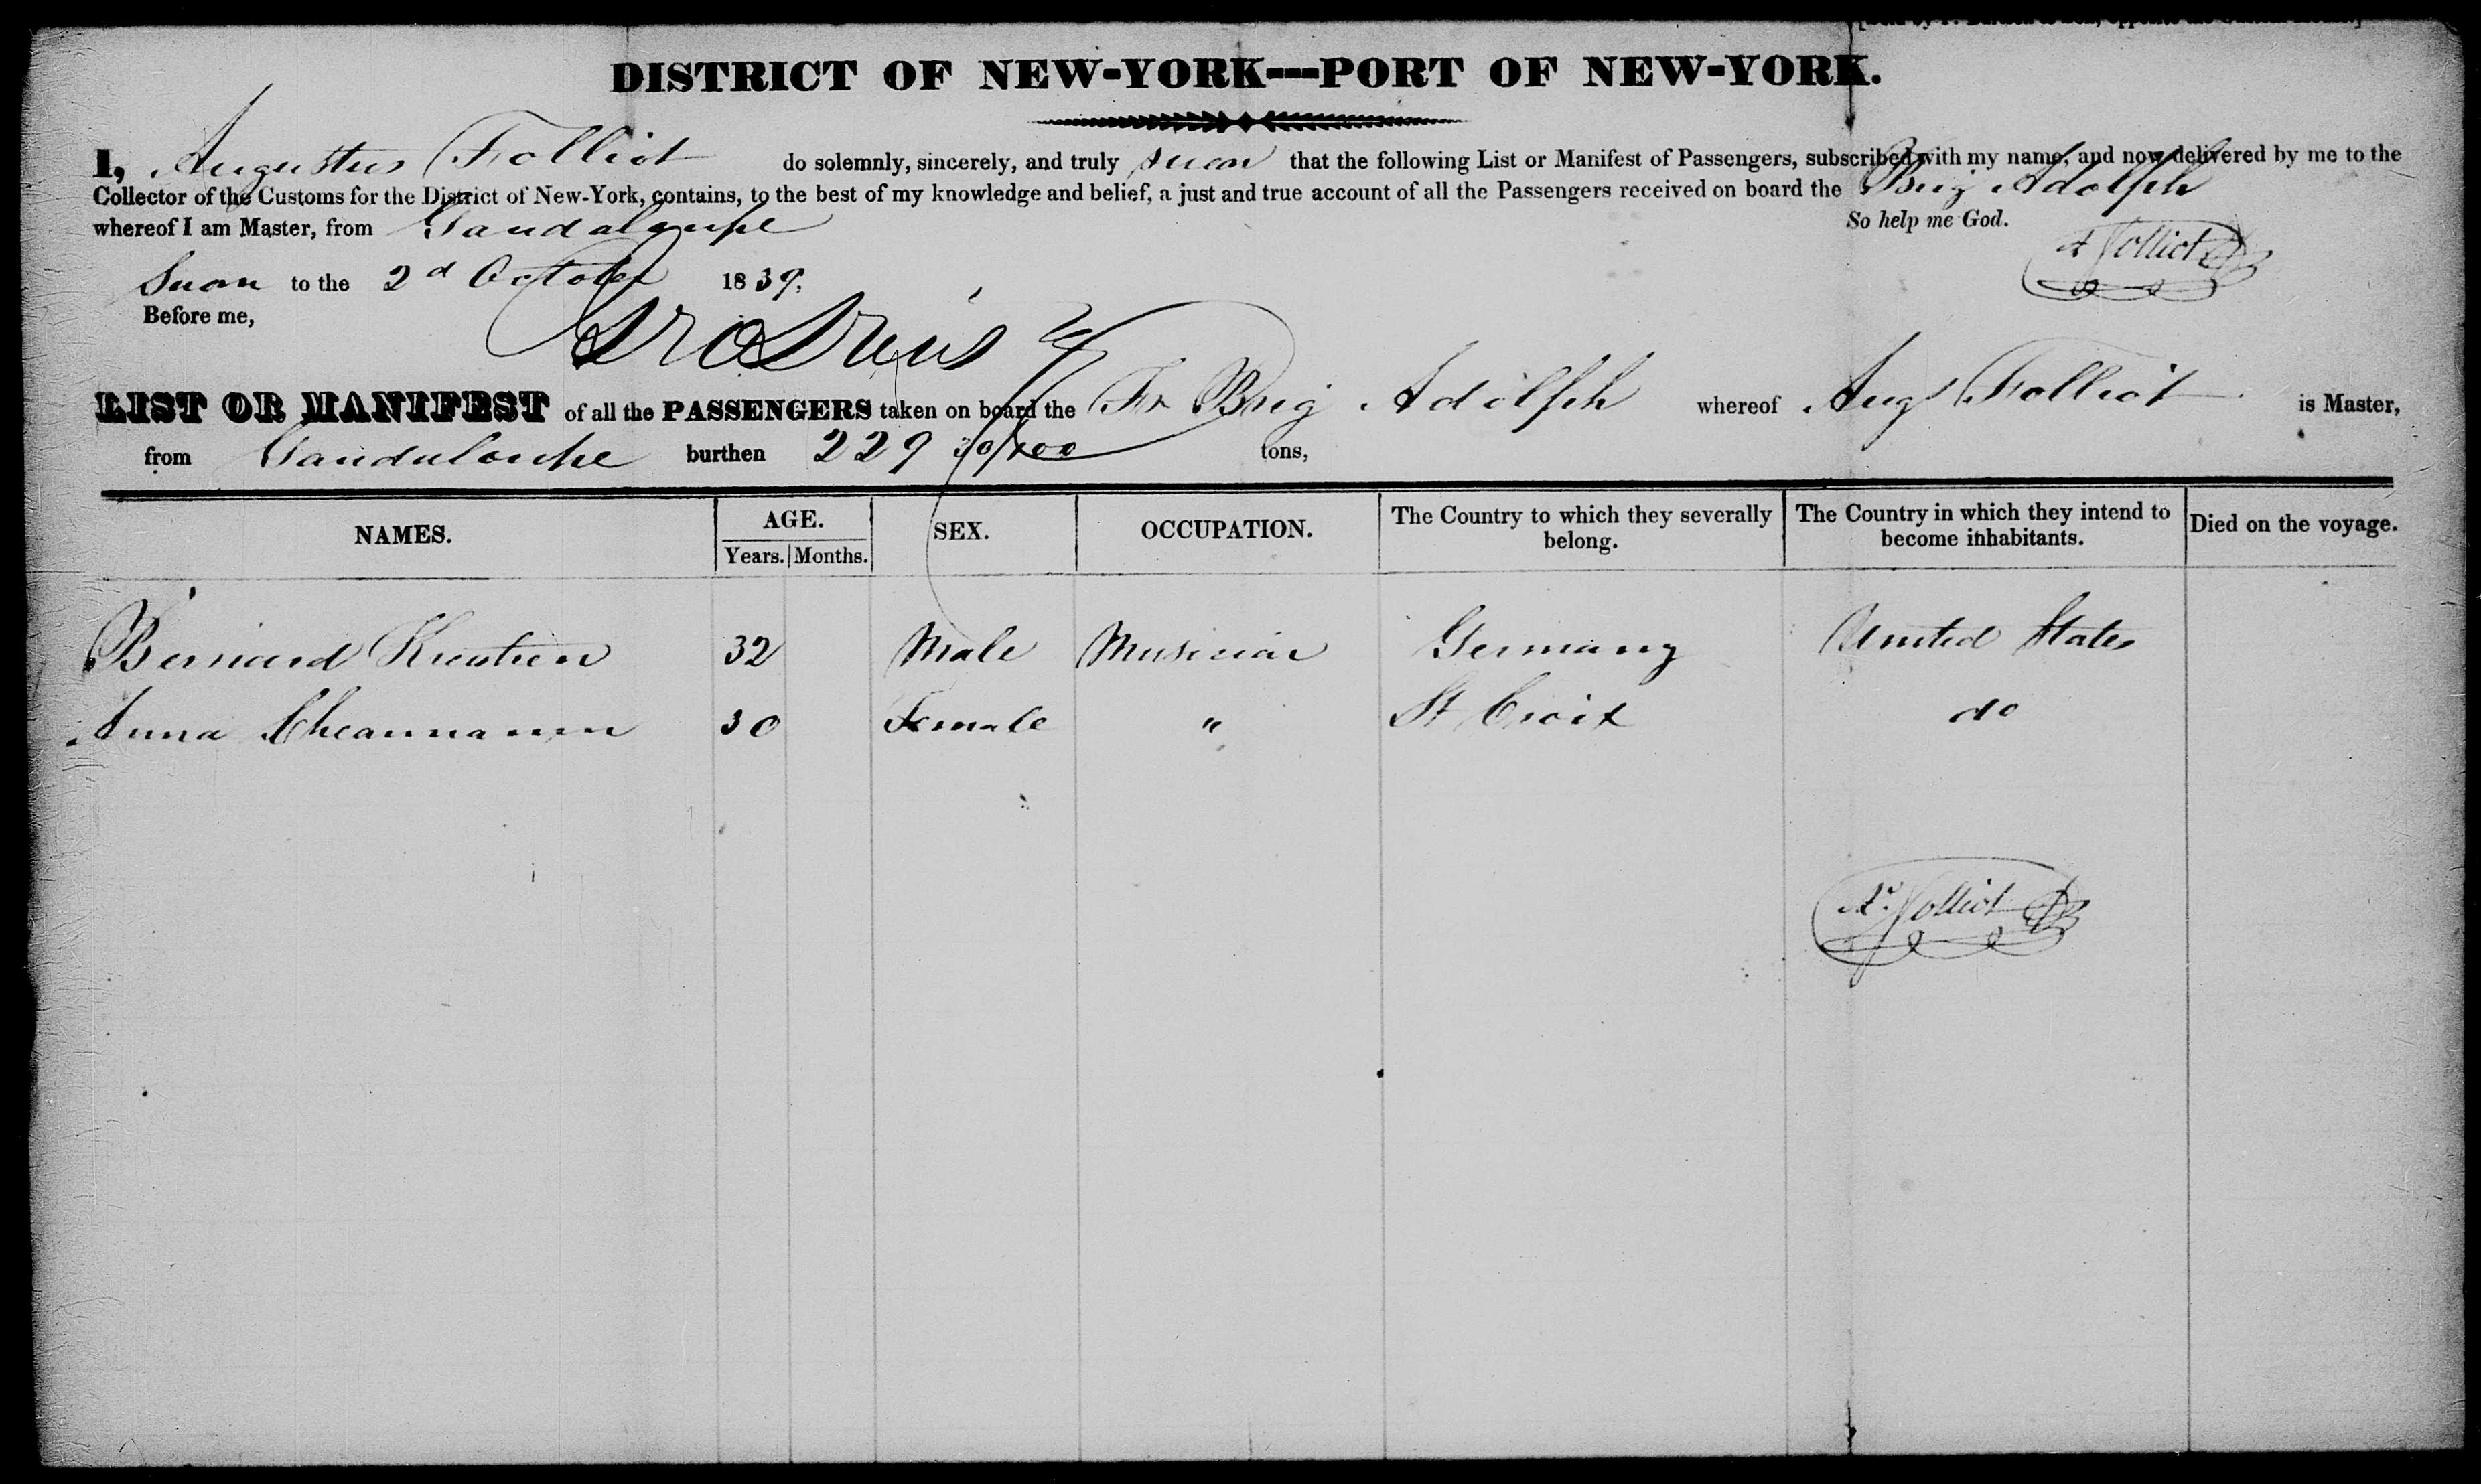 DISTRICT OF NEW-YORK---PORT OF NEW-YORK.
I, Augustus Folliot do solemnly, sincerely, and truly swear that the following List or Manifest of Passengers, subscribed with my name, and now delivered by me to the
Collector of the Customs for the District of New-York, contains, to the best of my knowledge and belief, a just and true account of all the Passengers received on board the Brig Adolph
whereof I am Master, from Gaudaloupe So help me God.
A Folliot
Suon to the 2d October 1839.
Before me,
LIST OR MANIFEST of all the PASSENGERS taken on board the Fr Brig Adolph whereof Aug Folliot is Master,
from Gaudaloupe burthen 229 30/100 tons,
NAMES. AGE. SEX. OCCUPATION. The Country to which they severally belong. The Country in which they intend to become inhabitants. Died on the voyage.
Years. Months.
Bernard 32 Male Musician Germany United States
Anna 30 Female " St Croix do
A. Folliot